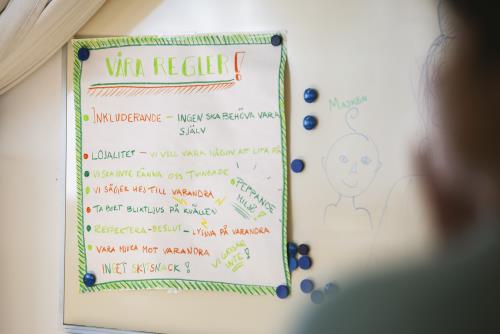 VÅRA REGLER!
INKLUDERANDE – INGEN SKA BEHÖVA VARA
SJÄLV
LOJALITET – VI VELL VARA NÅGON ATT LITA PÅ
VI SKA INTE KÄNNA OSS TVINGADE
VI SÄGER HEJ TILL VARANDRA
PEPPANDE
MILJÖ!
TA BORT BLIXTLJUS PÅ KVÄLLEN
RESPEKTERA BESLUT – LYSSNA PÅ VARANDRA
VARA MJUKA MOT VARANDRA
INGET SKITSNACK!
VI GRISAR
INTE!